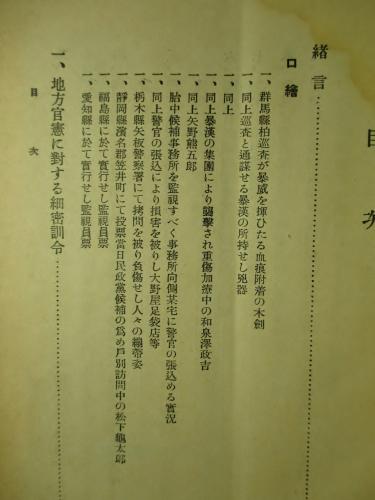 目次
緒言……………………
口繪
一、群馬縣柏巡査が暴威を揮ひたる血痕附着の木劍
一、同上巡査と通謀せる暴漢の所持せし兇器
一、同上
一、同上暴漢の集團により襲擊され重傷加療中の和泉澤政吉
一、同上矢野熊五郎
一、胎中候補事務所を監視すべく事務所向側某宅に警官の張込める實況
一、同上警官の張込により損害を被りし大野屋足袋店等
一、栃木縣矢板警察署にて拷問を被り負傷せし人々の繃帶姿
一、靜岡縣濱名郡笠井町にて投票當日民政黨候補の爲め戶別訪問中の松下龜太郎
一、福島縣に於て實行せし監視員票
一、愛知縣に於て實行せし監視員票
一、地方官憲に對する細密訓令……………………
目次